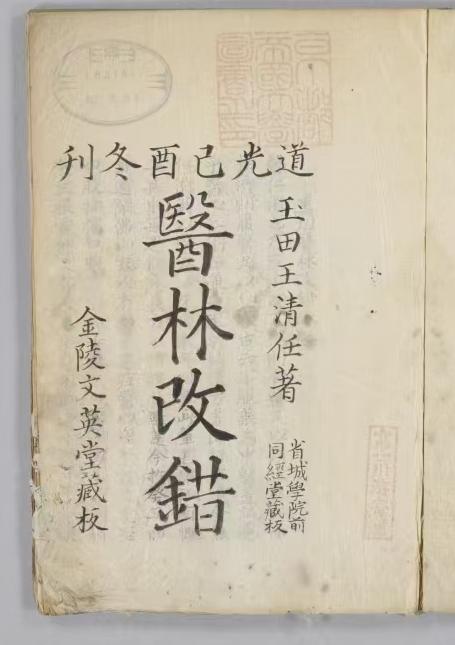 道光己酉冬刊
玉田王清任著
省城學院前
同經堂藏板
醫林改錯
金陵文英堂藏板